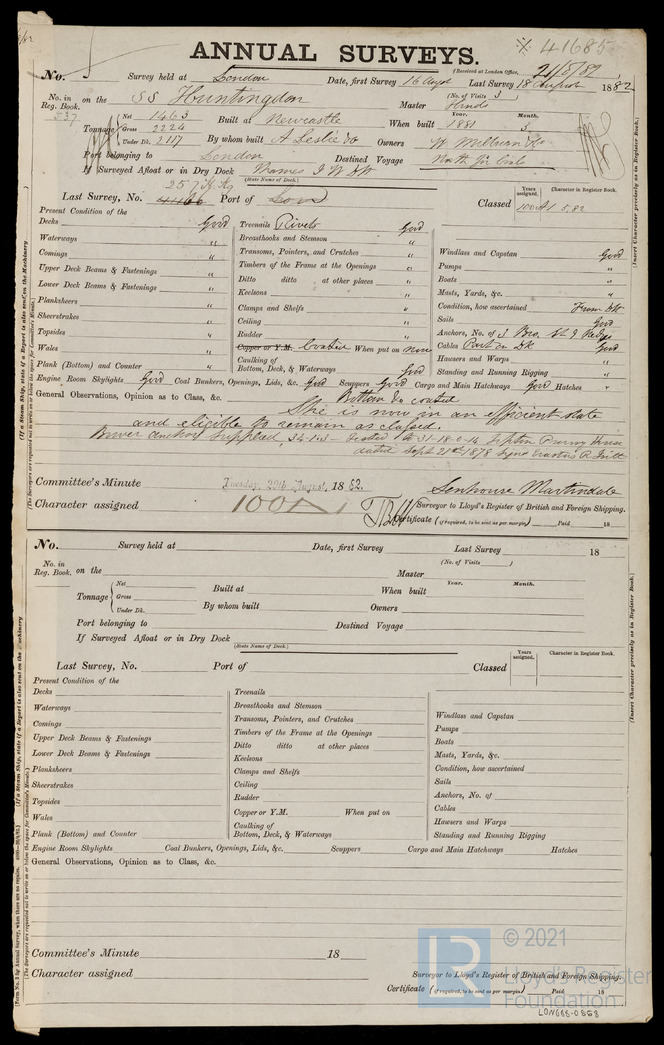 ANNUAL SURVEYS. 41685
Received at London Office, 21/8/82
No. Survey held at London Date, first Survey 16 Augt Last Survey 18 August 1882
No. in Reg. Book. 537 on the SS Huntingdon (No. of Visits 3) Master Hinds
Tonnage Net 1463 Built at Newcastle When built Year. 1881 Month. 3
Gross 2224
Under Dk. 2117 By whom built A Leslie & Co Owners W Milburn & Co
Port belonging to London Destined Voyage North for Coals
If Surveyed Afloat or in Dry Dock Thames I W Dk
(State Name of Dock.)
Last Survey, No. 4466 Port of Lon Classed Years assigned. Character in Register Book. 100A1 5,82
Present Condition of the
Decks Good
Waterways "
Comings "
Upper Deck Beams & Fastenings "
Lower Deck Beams & Fastenings "
Planksheers "
Sheerstrakes "
Topsides "
Wales "
Plank (Bottom) and Counter "
Treenails Rivets Good
Breasthooks and Stemson "
Transoms, Pointers, and Crutches "
Timbers of the Frame at the Openings "
Ditto ditto at other places "
Keelsons "
Clamps and Shelfs "
Ceiling "
Rudder "
Copper or Y.M. Coated When put on now
Caulking of Bottom, Deck, & Waterways Good
Windlass and Capstan Good
Pumps "
Boats "
Masts, Yards, &c. "
Condition, how ascertained From Dk
Sails Good
Anchors, No. of 3 Bro. St & Kedge
Cables Part on Dk Good
Hawsers and Warps "
Standing and Running Rigging "
Engine Room Skylights Good Coal Bunkers, Openings, Lids, &c. Good Scuppers Good Cargo and Main Hatchways Good Hatches "
General Observations, Opinion as to Class, &c. Bottom coated
She is now in an efficient state
and eligible to remain as classed.
Bower anchor supplied
dated Sept 21st 1878
Committee's Minute Tuesday, 22nd August, 1882.
Character assigned 100A1
Senhouse Martindale
Surveyor to Lloyd's Register of British and Foreign Shipping.
Certificate (if required, to be sent as per margin) Paid 18
No. Survey held at Date, first Survey Last Survey 18
No. in Reg. Book. on the (No. of Visits ) Master
Tonnage Net Built at When built Year. Month.
Gross
Under Dk. By whom built Owners
Port belonging to Destined Voyage
If Surveyed Afloat or in Dry Dock
(State Name of Dock.)
Last Survey, No. Port of Classed Years assigned. Character in Register Book.
Present Condition of the
Decks
Waterways
Comings
Upper Deck Beams & Fastenings
Lower Deck Beams & Fastenings
Planksheers
Sheerstrakes
Topsides
Wales
Plank (Bottom) and Counter
Treenails
Breasthooks and Stemson
Transoms, Pointers, and Crutches
Timbers of the Frame at the Openings
Ditto ditto at other places
Keelsons
Clamps and Shelfs
Ceiling
Rudder
Copper or Y.M. When put on
Caulking of Bottom, Deck, & Waterways
Windlass and Capstan
Pumps
Boats
Masts, Yards, &c.
Condition, how ascertained
Sails
Anchors, No. of
Cables
Hawsers and Warps
Standing and Running Rigging
Engine Room Skylights Coal Bunkers, Openings, Lids, &c. Scuppers Cargo and Main Hatchways Hatches
General Observations, Opinion as to Class, &c.
Committee's Minute 18
Character assigned
Surveyor to Lloyd's Register of British and Foreign Shipping.
Certificate (if required, to be sent as per margin) Paid 18
(Insert Character precisely as in Register Book.)
(Insert Character precisely as in Register Book.)
LR © 2021
Lloyd's Register
Foundation
LON688-0868